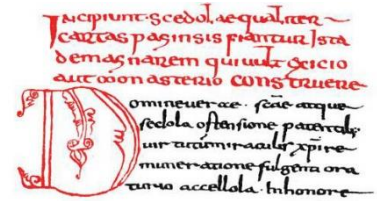 Incipiunt scedol aequaliter
cartas paginsis fiantur Ista
demagnarem qui vult exicio
aut oion asterio construere
Domineuerace scae atque
sedola ostensione patentali
uir tutum miraculis xpi re
muneratione fulgenti ora
turio accellola Inhonore